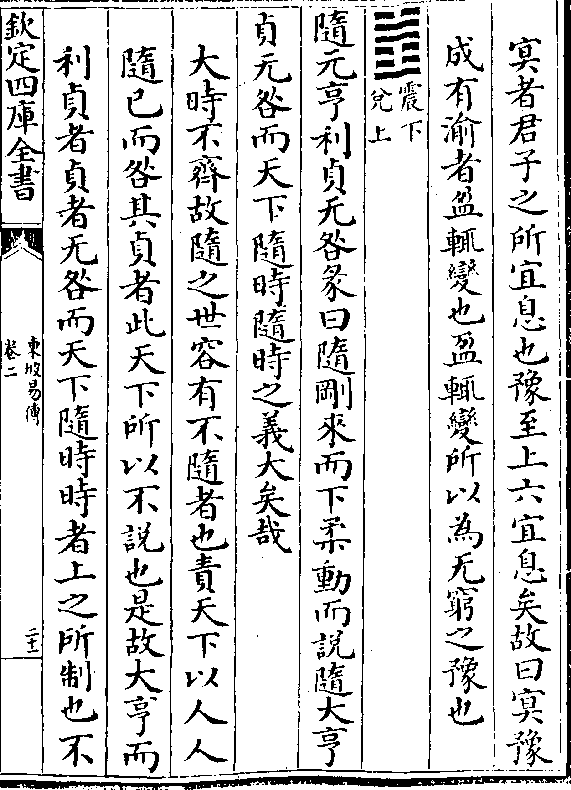 冥者君子之所宜息也豫至上六宜息矣故曰冥豫
成有渝者盈輒變也盈輒變所以為无窮之豫也
震下
兊上
隨元亨利貞无咎彖曰隨剛來而下柔動而說隨大亨
貞无咎而天下隨時隨時之義大矣哉
大時不齊故隨之世容有不隨者也責天下以人人
隨已而咎其貞者此天下所以不說也是故大亨而
利貞者貞者无咎而天下隨時時者上之所制也不
欽定四庫全書
東坡易傳
卷二